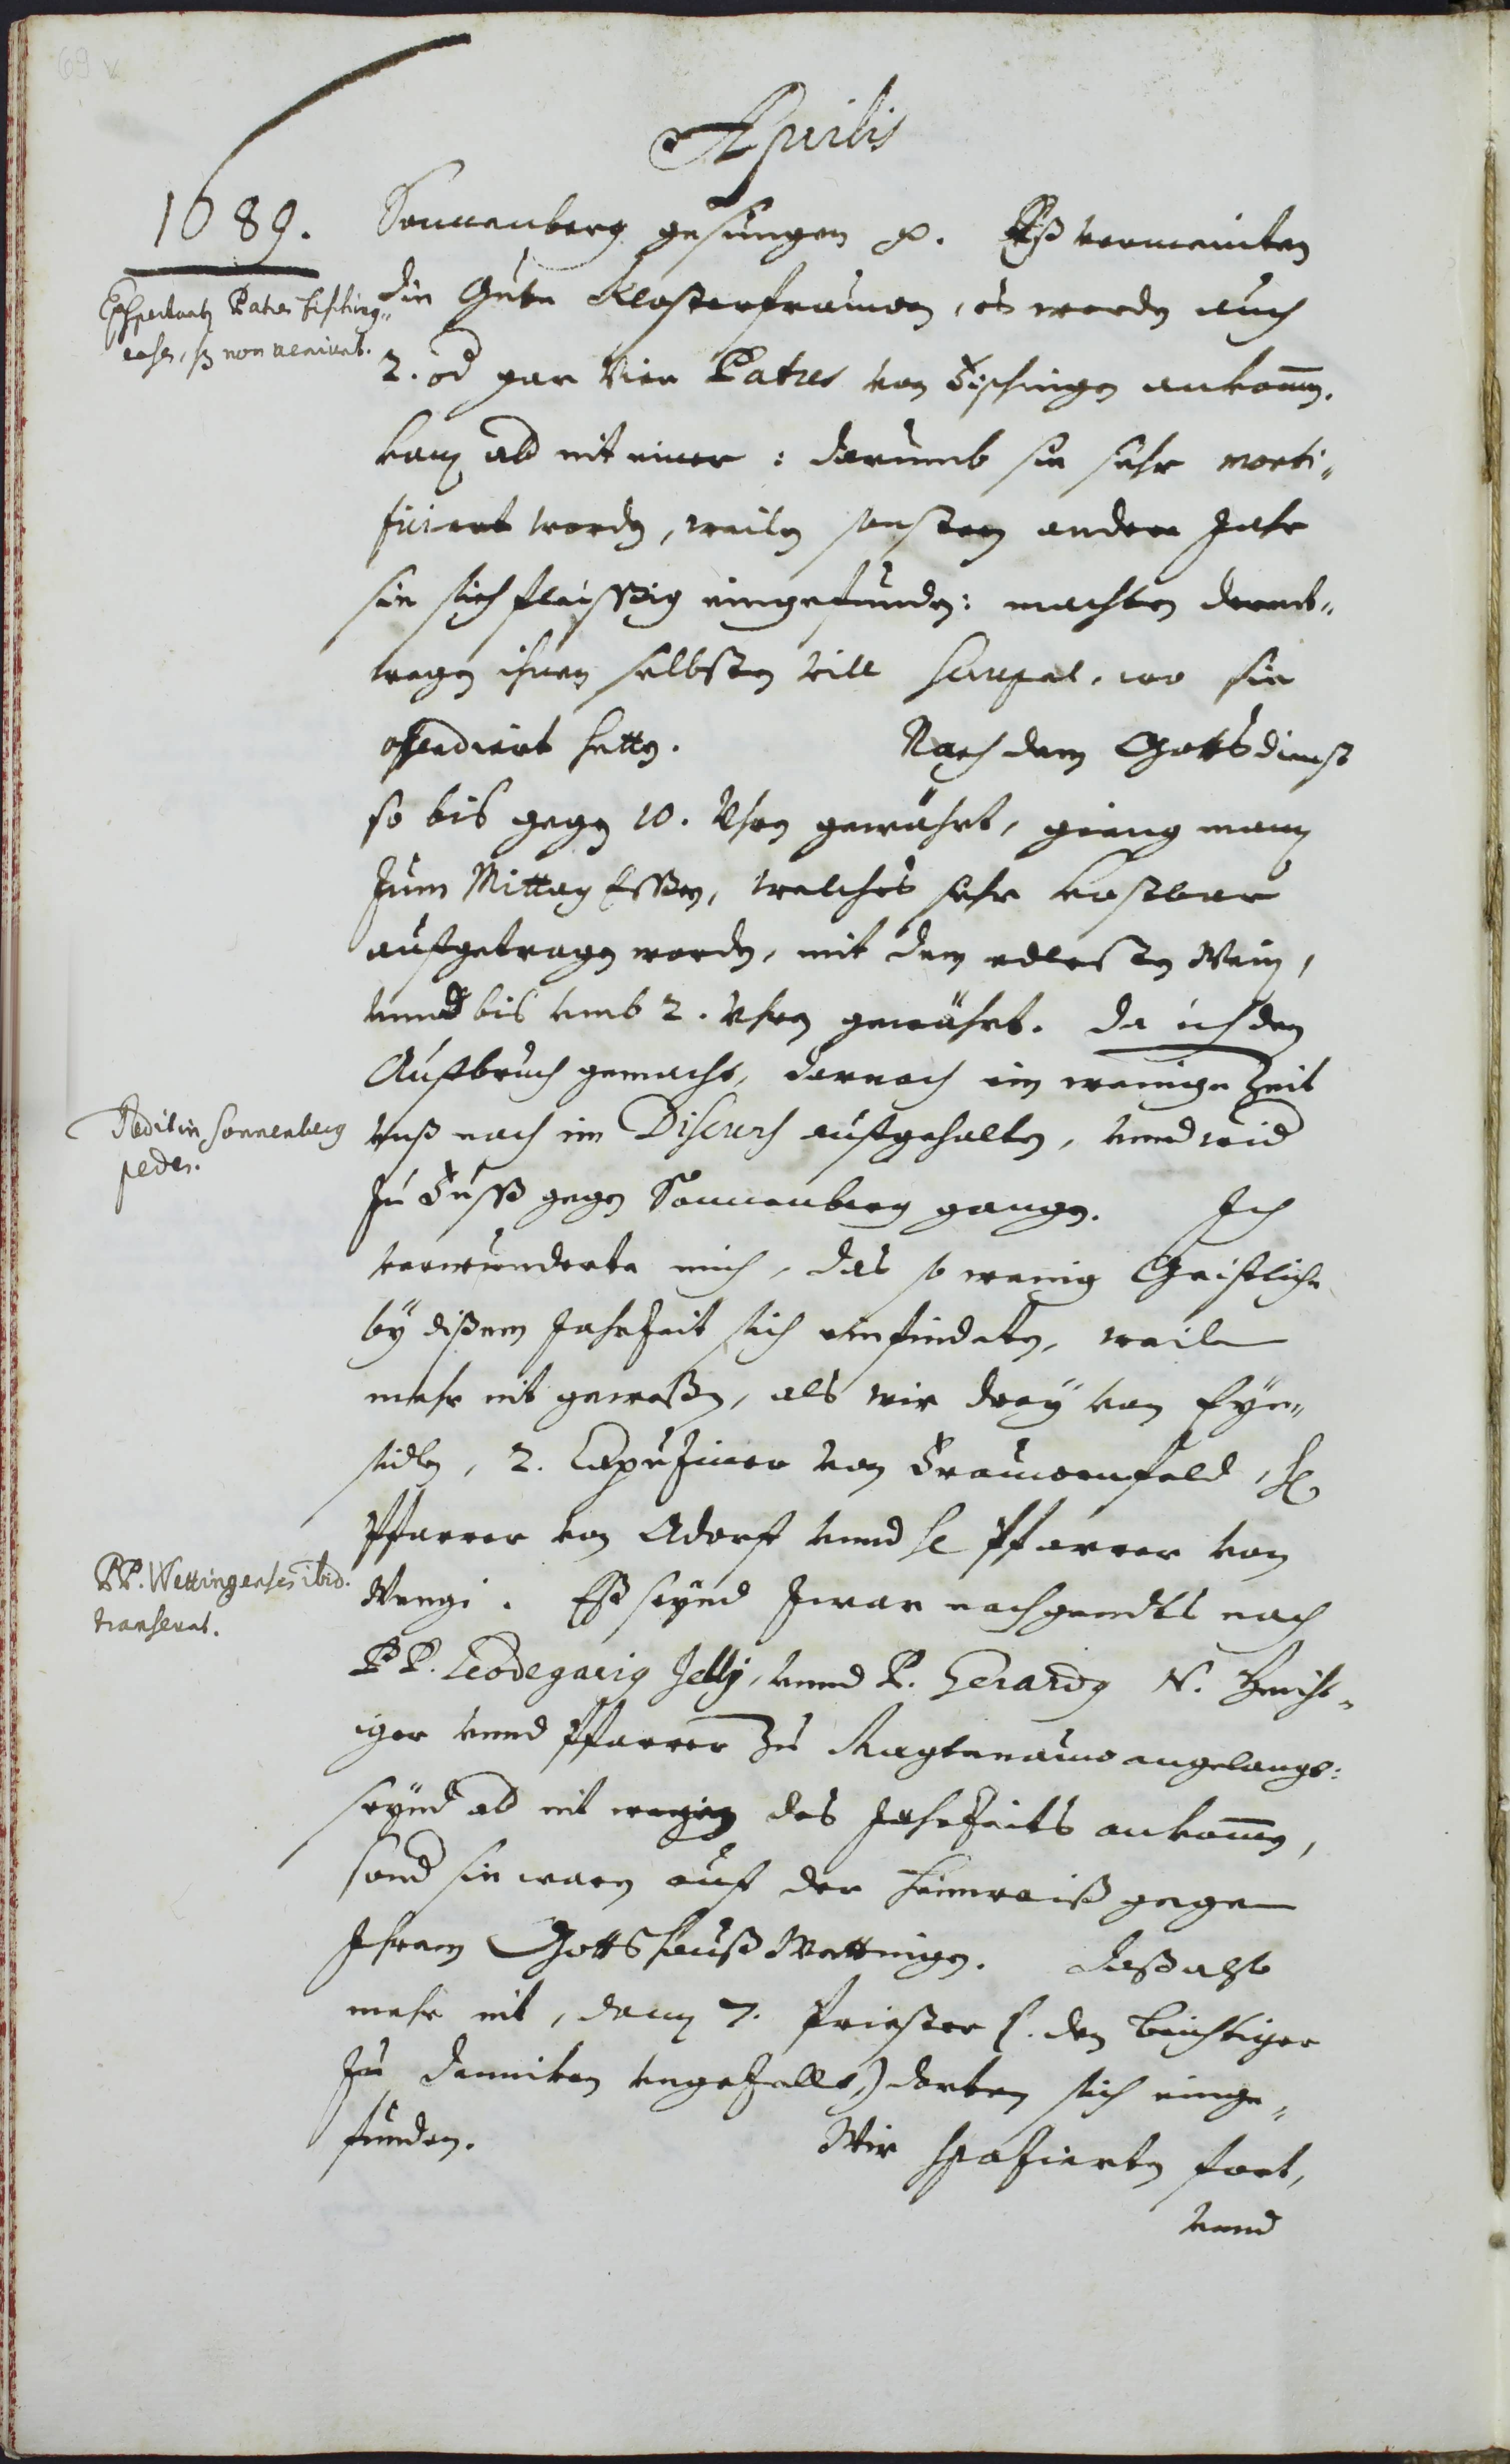 69 v
Aprilis
1689.
Sonnenberg gesungen p. Eß vermeinten
Expectantur Patres Fisching-
enses, sed non veniunt.
die Gute Klosterfrauwen, es werde auch
2. oder gar Vier Patres von Fischingen ankommen.
kam aber nit einer: darumb sie sehr morti-
ficiert worden, weilen sonsten andere Jahr
sie sich fleissig eingefunden: machten derent-
wegen ihnen selbsten vill scrupel, wo sie
offendiert hetten. Nach dem Gottsdienst
so bis gegen 10. Uhren gewährt, gieng man
zum Mittag Essen, welches sehr kostbar
aufgetragen worden, mit dem edlesten Wein,
unnd bis umb 2. Uhren gewährt. da ich den
Aufbruch gemacht, darnach ein wenige Zeit
Redit in Sonnenberg
pedes.
unß noch im Discurs aufgehalten, unnd wider
zu Fuss gegen Sonnenberg gangen. Ich
verwunderte mich, das so wenig Geistliche
bÿ disem Jahrzeit sich einfindeten, weilen
mehr nit gewesen, als wir dreÿ von Eÿn-
sidlen, 2. Capuziner von Frauwenfeld, H.
Pfarrer von Adorff unnd H. Pfarrer von
PP. Wettingenses ibid.
transeunt.
Wengi. Eß seÿnd zwar nachgendts noch
PP. Leodegarius Jelly, unnd P. Gerardus N. Beicht-
iger unnd Pfarrer zu Magdenauw angelangt:
seÿnd aber nit wegen des Jahrzeits ankommen,
sonder sie waren auf der Heimreiß gegen
Ihrem Gottshauß Wettingen. daß also
mehr nit, dann 7. Priester (den Beichtiger
zu Denniken ungezellt) dorten sich einge-
funden. Wir spazierten fort,
unnd